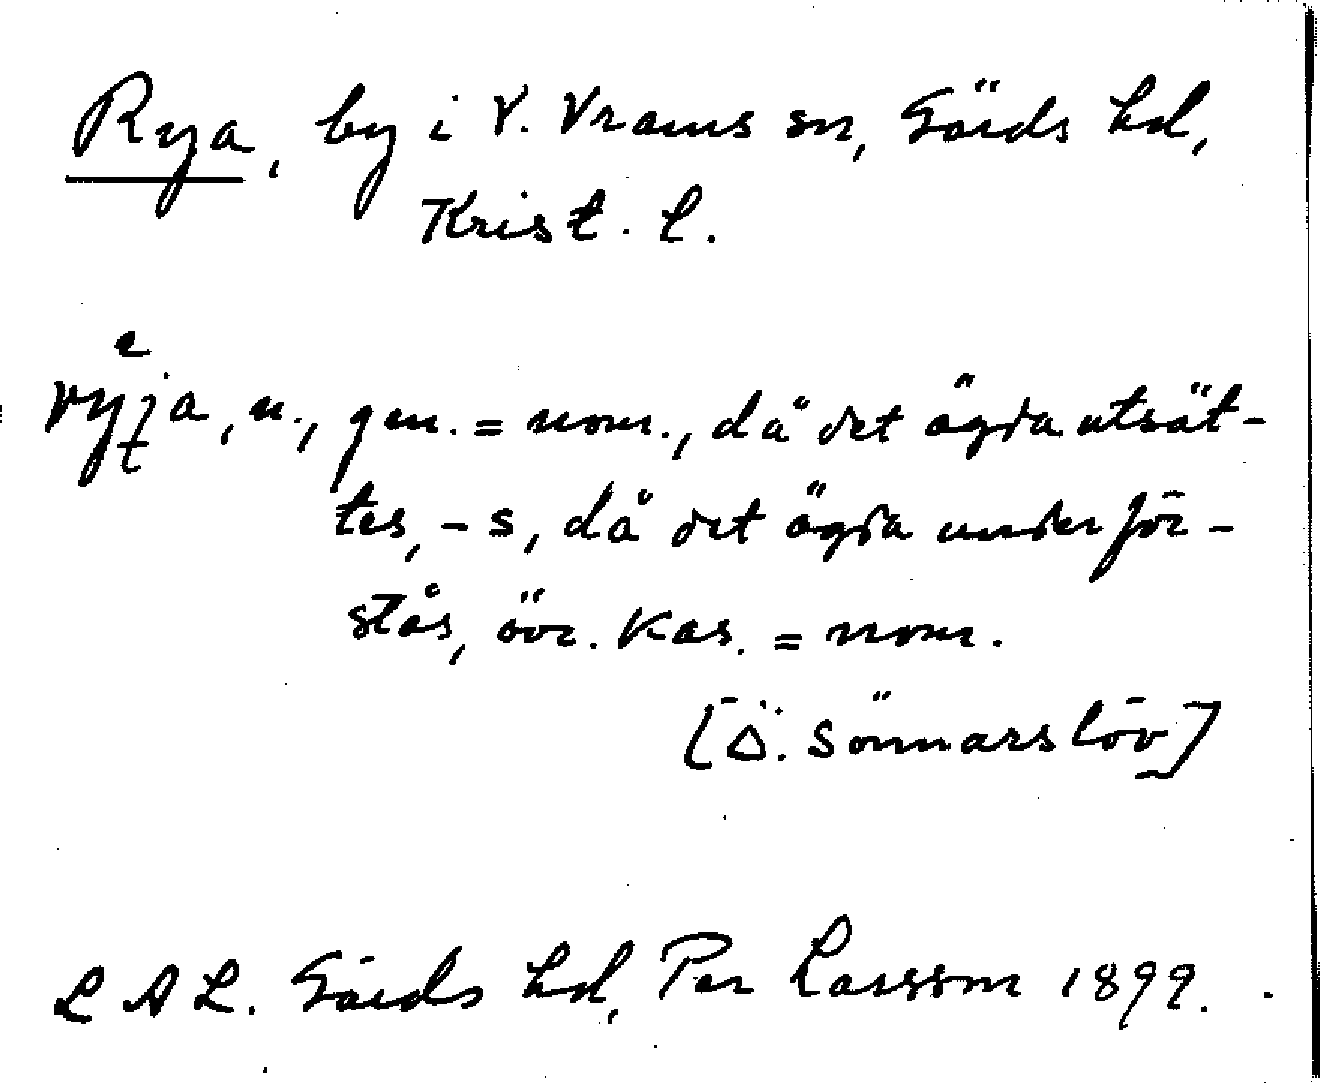 Rya, by i V. Vrams sn, Gärds hd,
Krist. l.
ryja, n., gen. = nom., då det ägda utsät-
tes, -s, då det ägda underför-
stås, övr. kas. = nom.
[Ö. Sönnarslöv]
LAL. Gärds hd, Per Larsson 1899.